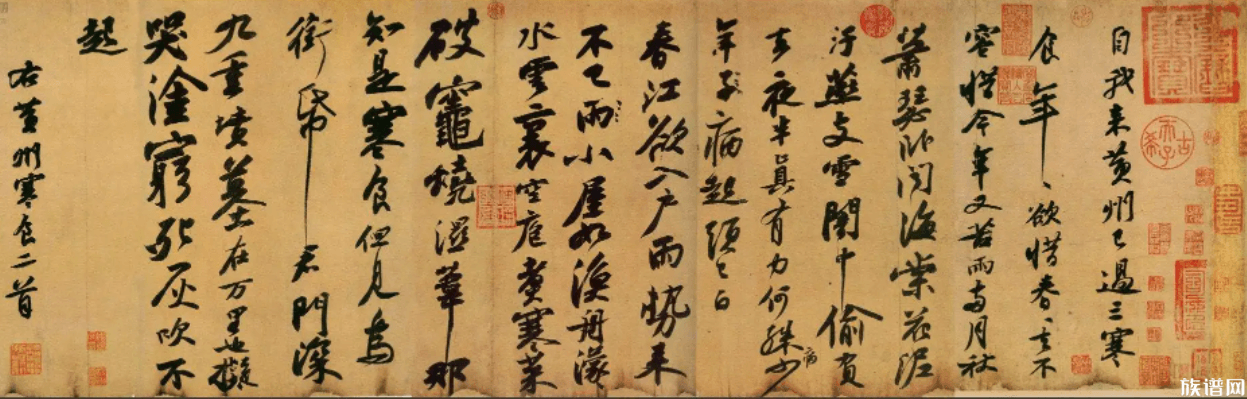 自我來黃州已過三寒
食年、欲惜春、去不
容惜今年又苦雨兩月秋
蕭瑟卧聞海棠花泥
汙燕支雪闇中偷負
去夜半真有力何殊少
病
年子病起頭已白
春江欲入戶雨勢來
不已雨小屋如漁舟濛
水雲裏空庖煮寒菜
破竈燒濕葦那
知是寒食但見烏
銜帋君門深
九重墳墓在万里也擬
哭塗窮死灰吹不
起
右黃州寒食二首
古希天子
族谱网